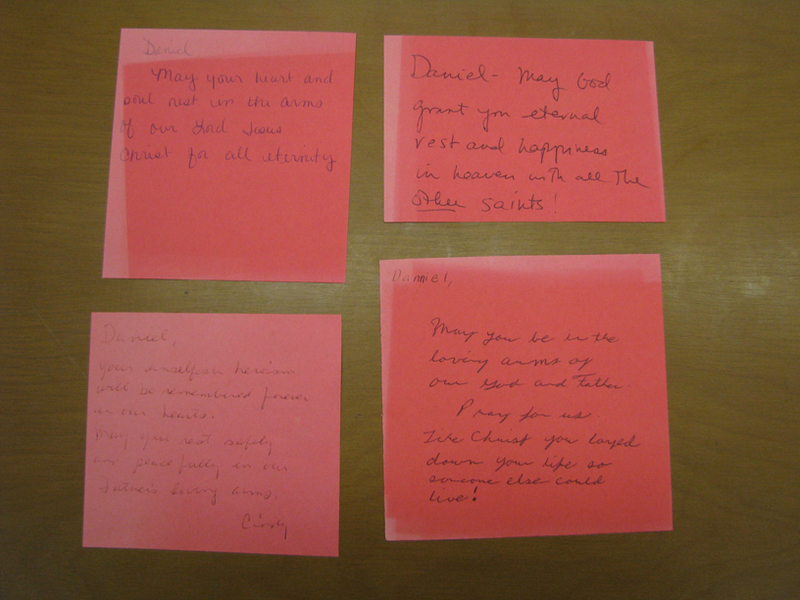 Daniel
May your heart and
soul rest in the arms
of our Lord Jesus
Christ for all eternity
Daniel - May God
grant you eternal
rest and happiness
in heaven with all the
other saints!
Daniel,
your unselfish heroism
will be remembered forever
in our hearts.
May you rest safely
and peacefully in our
Father's loving arms.
Cindy
Danniel,
May you be in the
loving arms of
our God and Father.
Pray for us.
Like Christ you layed
down your life so
someone else could
live!